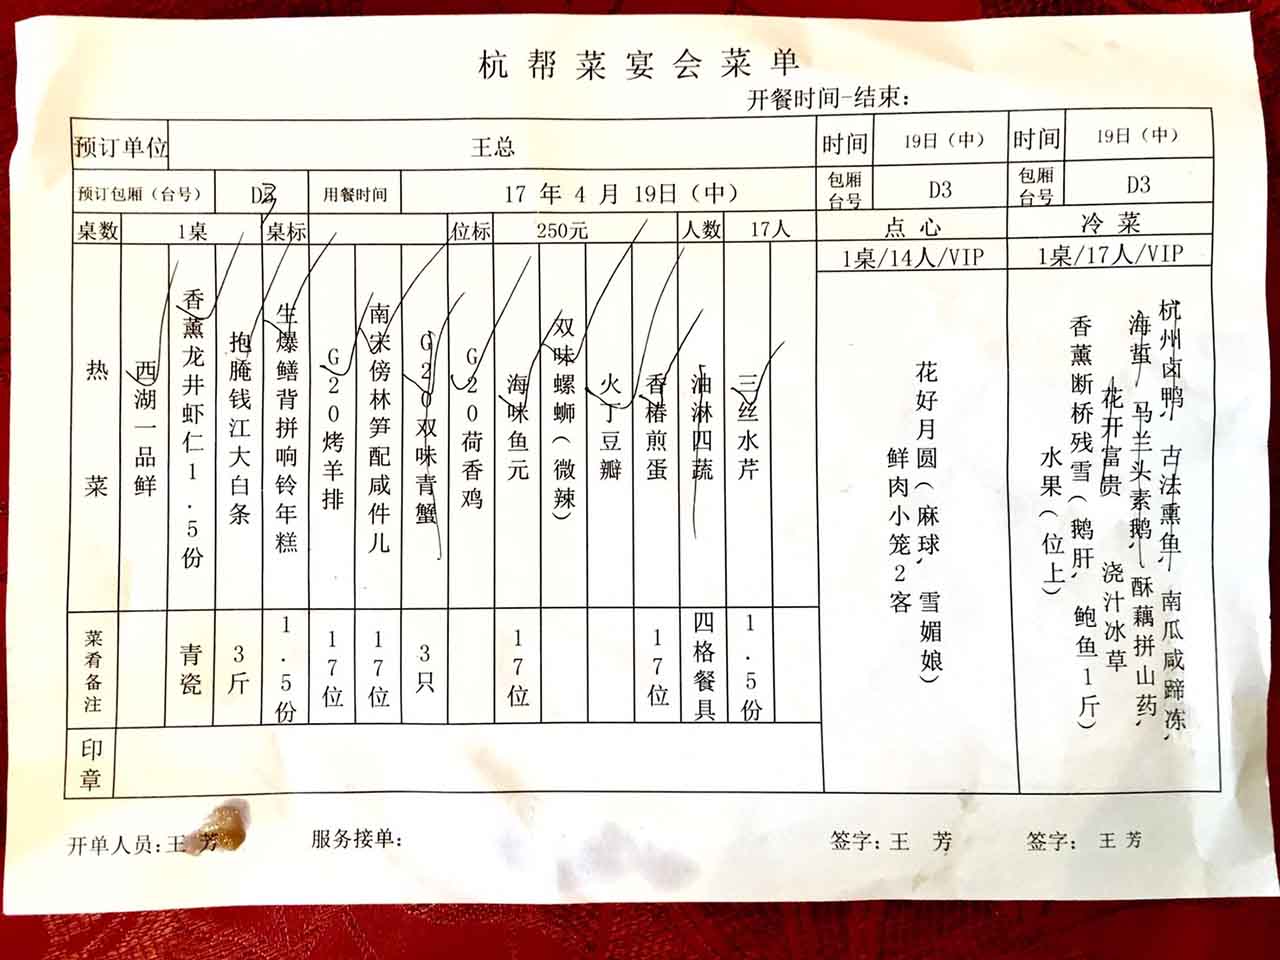 杭帮菜宴会菜单
开餐时间-结束：
预订单位 王总 时间 19日（中） 时间 19日（中）
预订包厢（台号） D3 用餐时间 17 年 4 月 19日（中） 包厢台号 D3 包厢台号 D3
桌数 1桌 桌标 位标 250元 人数 17人 点心 冷菜
1桌/14人/VIP 1桌/17人/VIP
热菜
西湖一品鲜
香薰龙井虾仁1.5份
抱腌钱江大白条
生爆鳝背拼响铃年糕
G20烤羊排
南宋傍林笋配咸件儿
G20双味青蟹
G20荷香鸡
海味鱼元
双味螺蛳（微辣）
火丁豆瓣
香椿煎蛋
油淋四蔬
三丝水芹
花好月圆（麻球、雪媚娘）
鲜肉小笼2客
杭州卤鸭、古法熏鱼、南瓜咸蹄冻、
海蜇、马兰头素鹅、酥藕拼山药、
花开富贵、浇汁冰草
香薰断桥残雪（鹅肝、鲍鱼1斤）
水果（位上）
菜肴备注
青瓷
3斤
1.5份
17位
17位
3只
17位
17位
四格餐具
1.5份
印章
开单人员：王芳 服务接单： 签字：王 芳 签字：王 芳